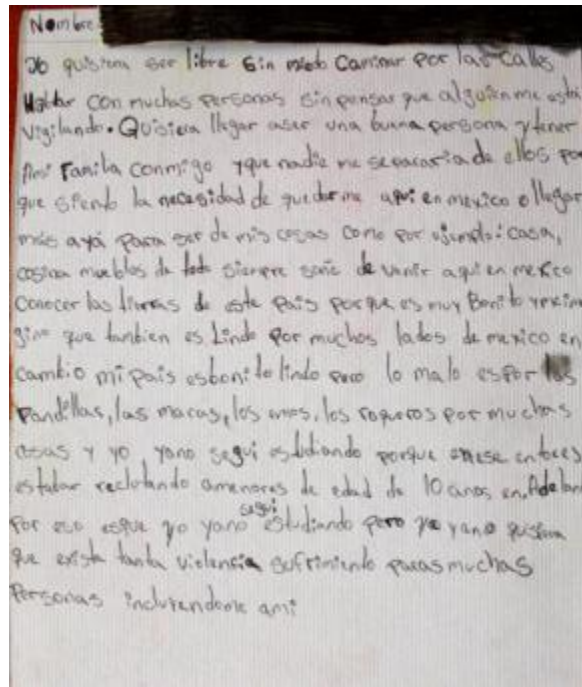 Nombre:
yo quisiera ser libre sin miedo caminar por las calles
Hablar con muchas personas sin pensar que alguien me esta
vigilando. Quisiera llegar aser una buena persona y tener
Ami Familia conmigo yque nadie me separaria de ellos por
que siento la necesidad de quedarme aqui en mexico o llegar
mas ayá para ser de mis cosas como por ejemplo: casa,
cosina mueblos de todo siempre soñe de venir aqui en mexico
Conocer las tierras de este Pais porque es muy Bonito
gino que tanbien es Lindo por muchos lados de mexico en
cambio mi pais esbonito lindo pero lo malo espor las
Pandillas, las maras, los los roqueros por muchas
cosas y yo yano segui estudiando porque enese entoces
estaban reclutando amenores de edad de 10 años en Adelan
por eso esque yo yano segui estudiando pero ya yano quisiera
que exista tanta violencia sufrimiento paras muchas
Personas incluyendome ami